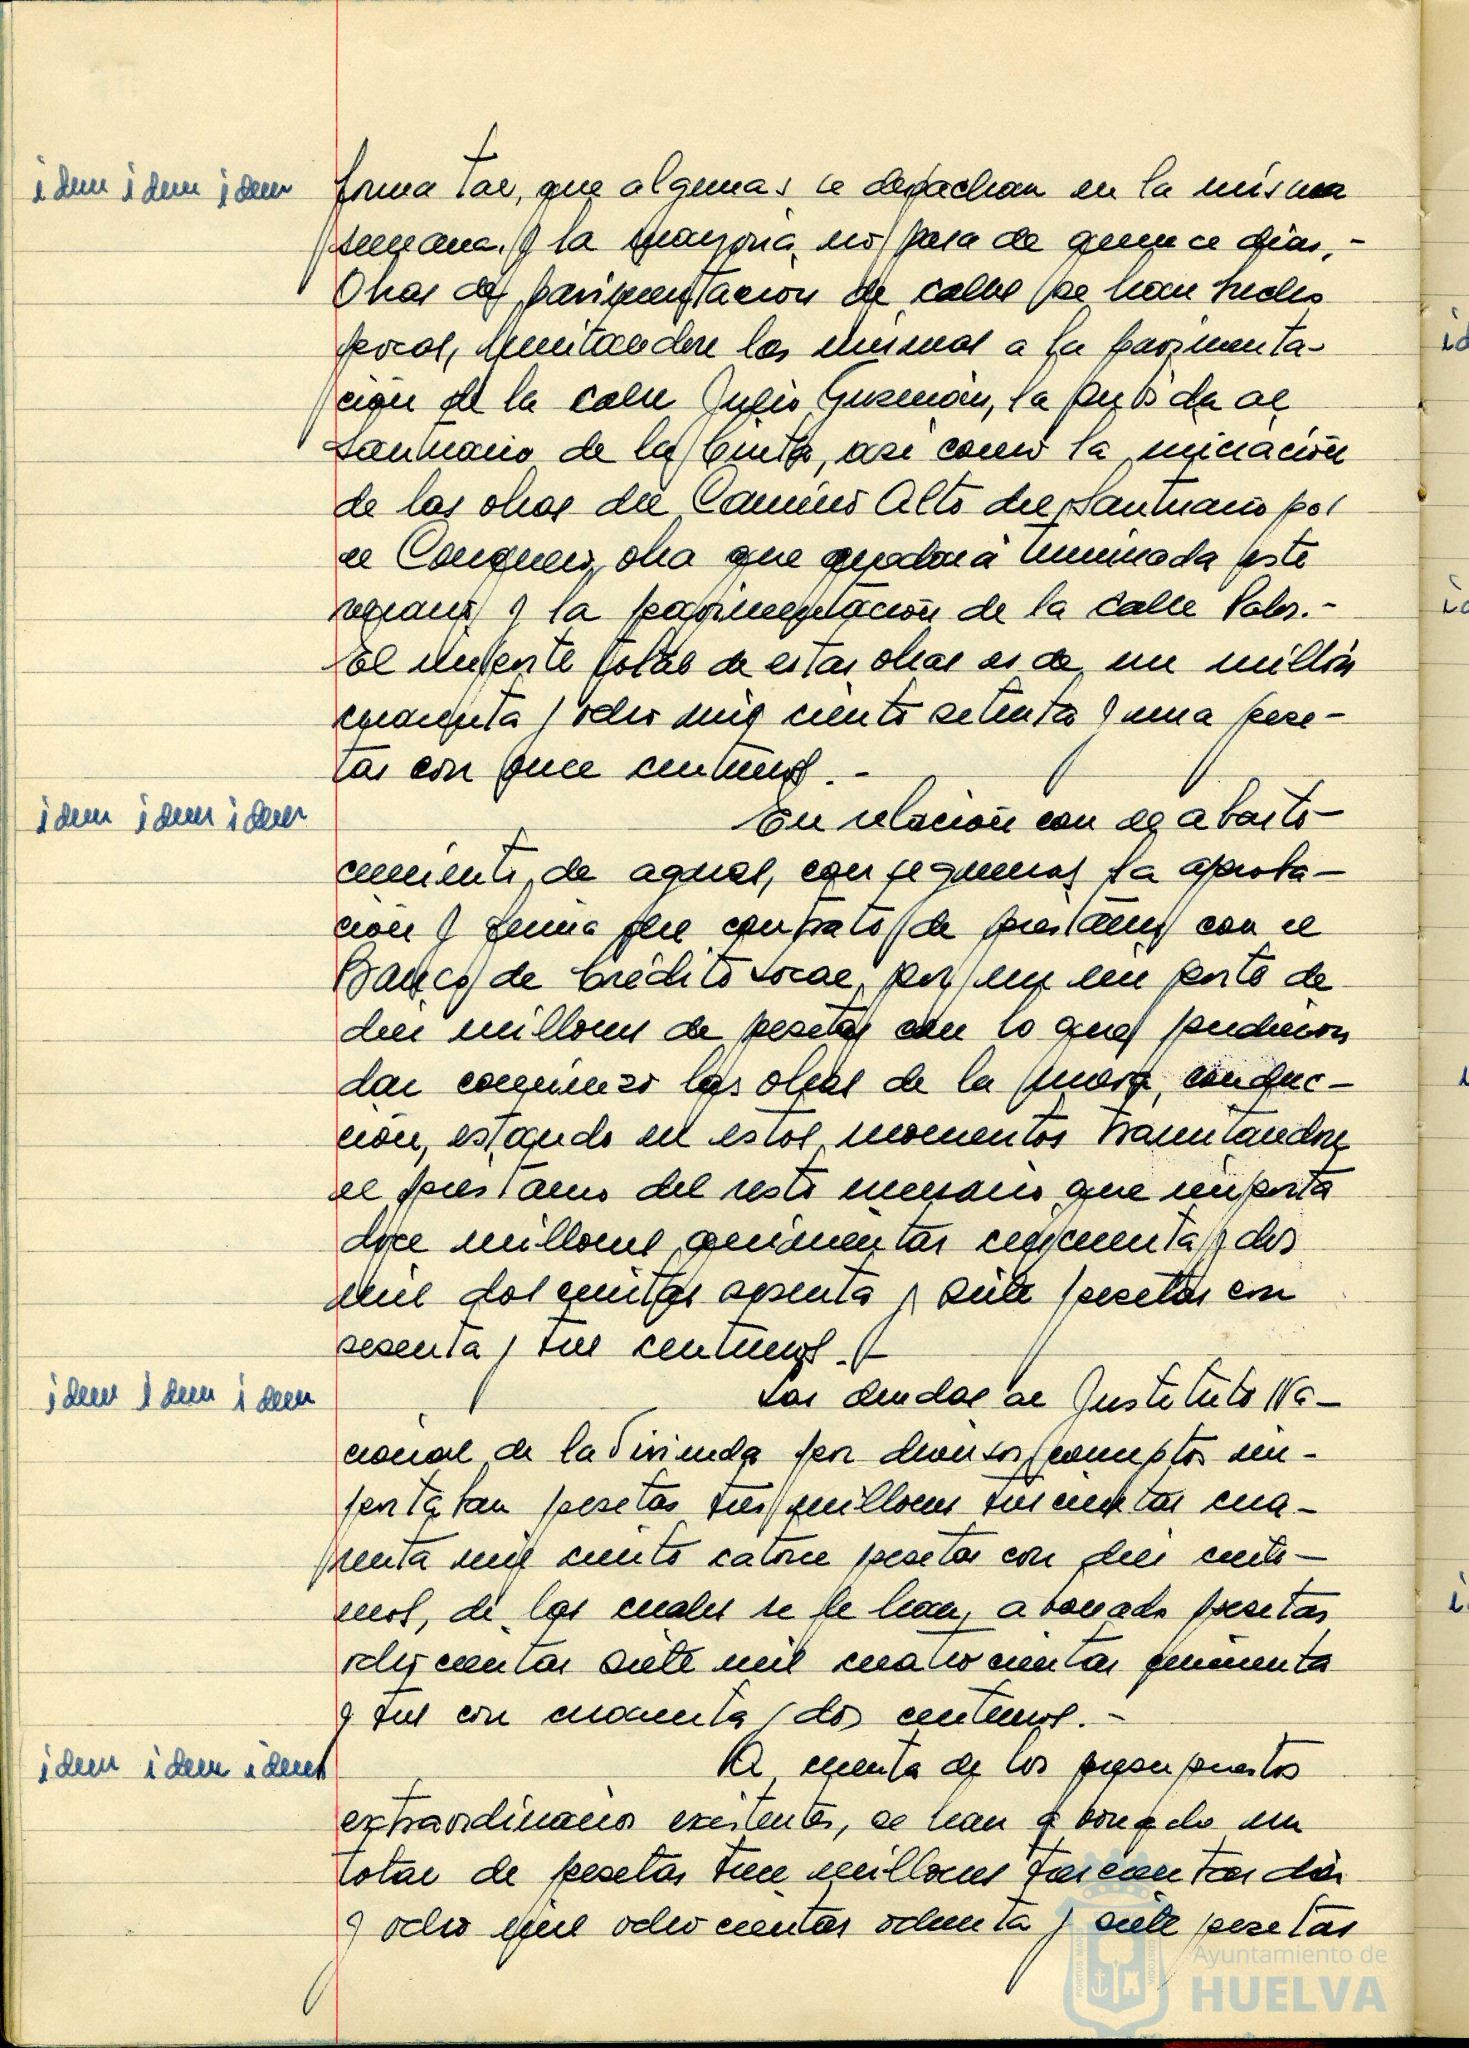 idem idem idem
forma tal, que algunas se despachan en la misma
semana y la mayoria no pasa de quince dias.-
Obras de pavimentación de calles se han hecho
pocas, limitandose las mismas a la pavimenta-
ción de la calle Julio Guzmán, la subida al
Santuario de la Cinta, asi como la iniciación
de las obras del Camino Alto del Santuario por
el Conquero, obra que quedará terminada este
verano y la pavimentación de la calle Palos.-
El importe total de estas obras es de un millón
cuarenta y ocho mil ciento setenta y una pese-
tas con once centimos.-
idem idem idem
En relación con el abaste-
cimiento de aguas, conseguimos la aproba-
ción y firma del contrato de prestamo con el
Banco de Crédito Local, por un importe de
diez millones de pesetas con lo que pudieron
dar comienzo las obras de la nueva conduc-
ción, estando en estos momentos tramitandose
el prestamo del resto necesario que importa
doce millones quinientas cincuenta y dos
mil doscientas sesenta y siete pesetas con
sesenta y tres centimos.-
idem idem idem
Las deudas al Instituto Na-
cional de la Vivienda por diversos conceptos im-
portaban pesetas tres millones trescientas cua-
renta mil ciento catorce pesetas con diez centi-
mos, de las cuales se le han abonado pesetas
ochocientas siete mil cuatrocientas cincuenta
y tres con cuarenta y dos centimos.-
idem idem idem
A cuenta de los presupuestos
extraordinarios existentes, se han abonado un
total de pesetas trece millones trescientas diez
y ocho mil ochocientas ochenta y siete pesetas
Ayuntamiento de
HUELVA